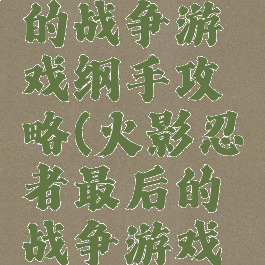 的战争游
戏纲手攻
略(火影忍
者最后的
战争游戏